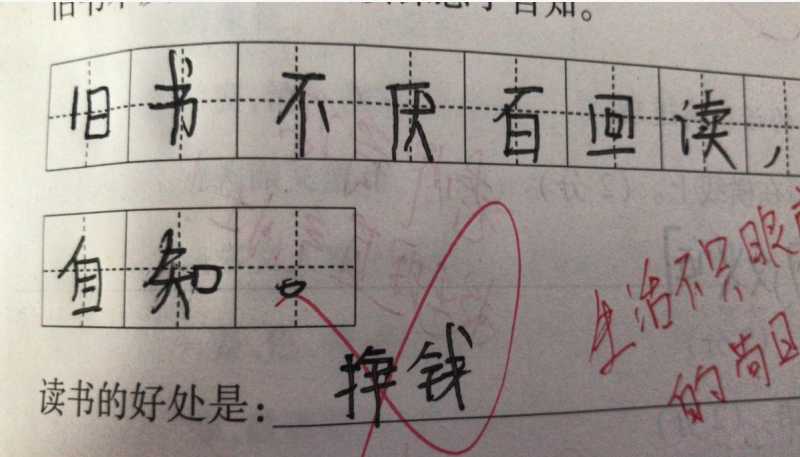 自知。
旧书不厌百回读，
自知。
读书的好处是：挣钱
生活不只眼前
的苟且